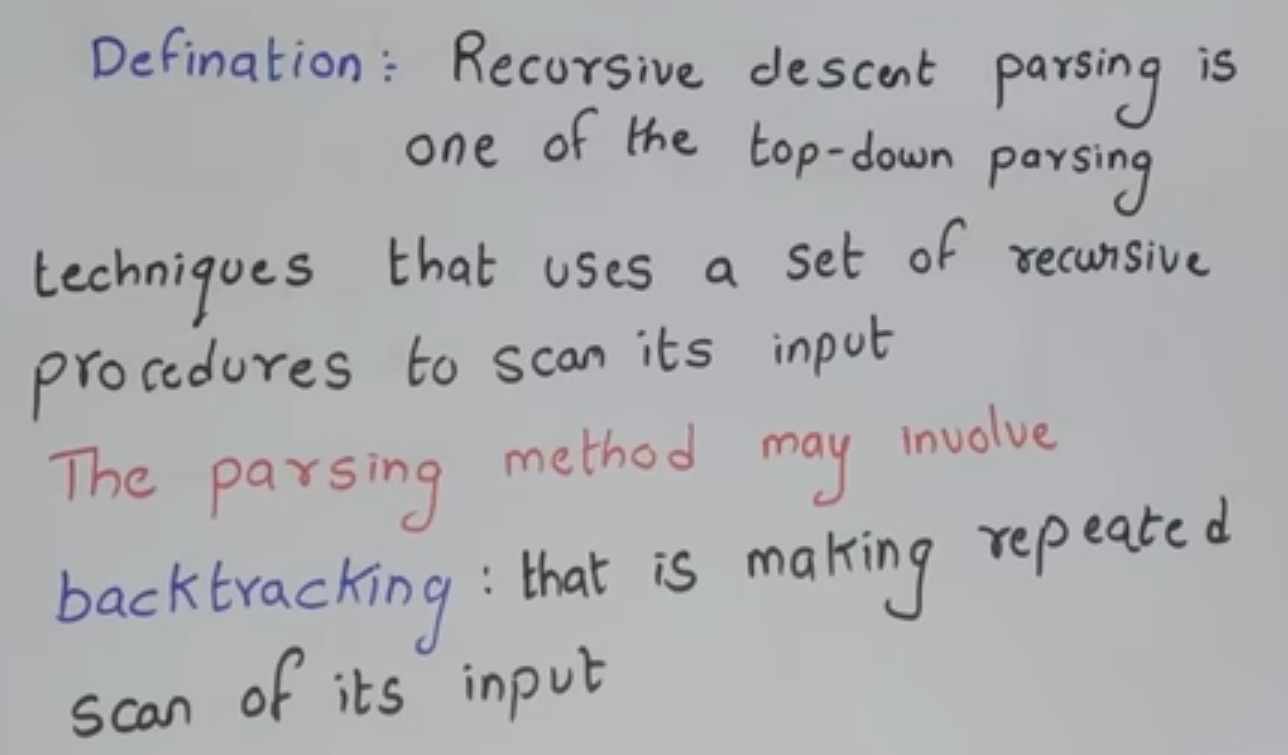 Defination: Recursive descent parsing is
one of the top-down parsing
techniques that uses a set of recursive
procedures to scan its input
The parsing method may involve
backtracking: that is making repeated
scan of its input